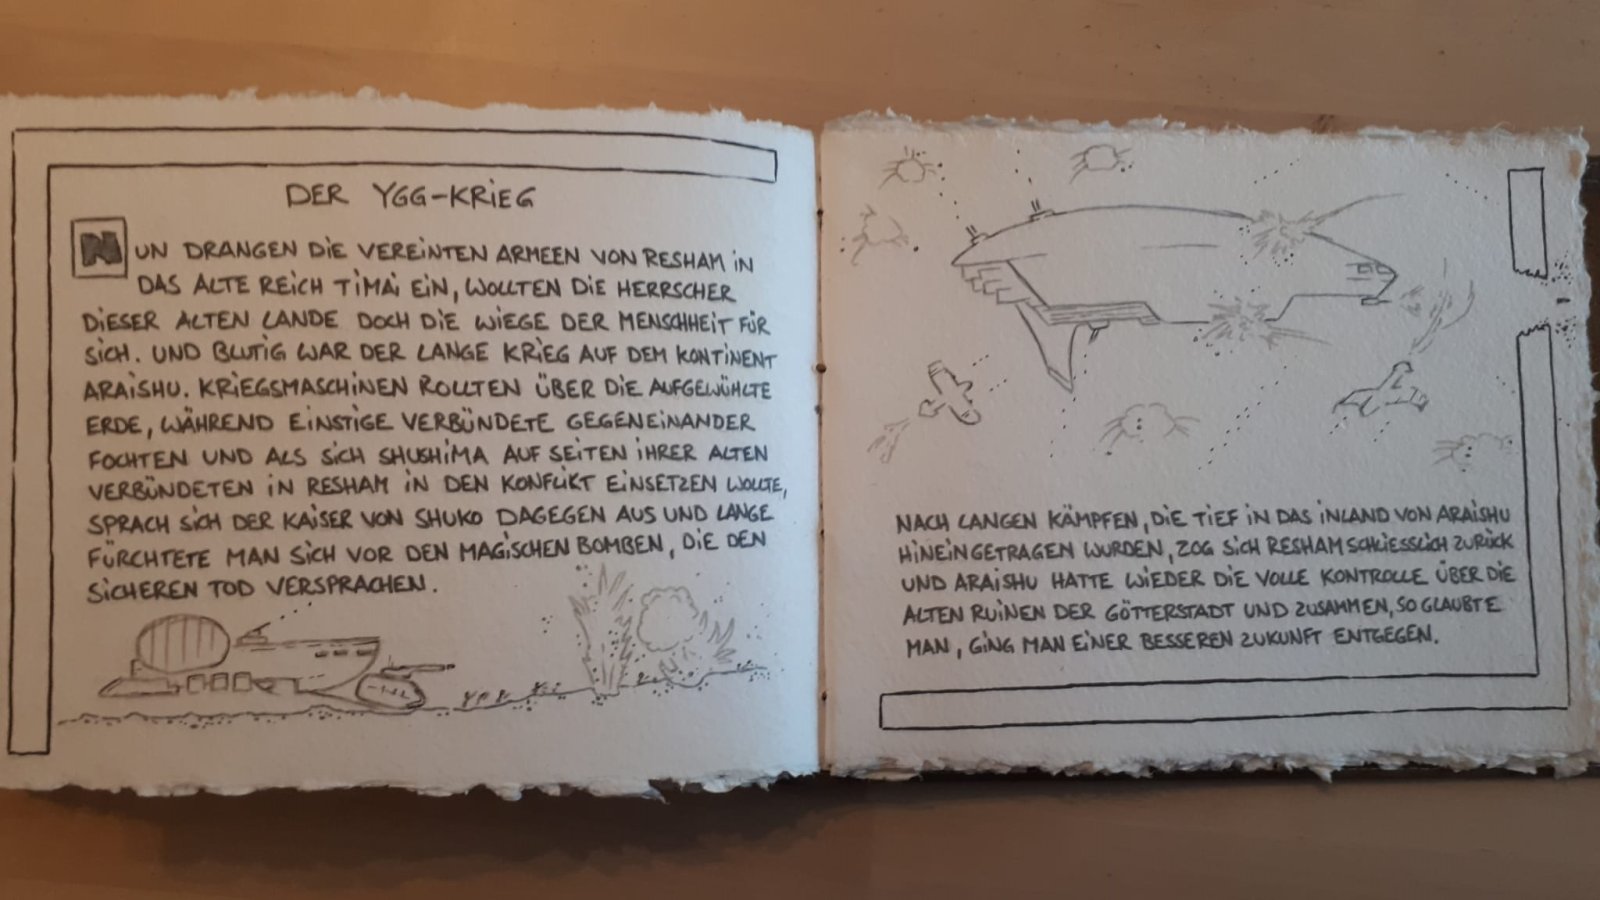 DER YGG-KRIEG
NUN DRANGEN DIE VEREINTEN ARMEEN VON RESHAM IN
DAS ALTE REICH TIMAI EIN, WOLLTEN DIE HERRSCHER
DIESER ALTEN LANDE DOCH DIE WIEGE DER MENSCHHEIT FÜR
SICH. UND BLUTIG WAR DER LANGE KRIEG AUF DEM KONTINENT
ARAISHU. KRIEGSMASCHINEN ROLLTEN ÜBER DIE AUFGEWÜHLTE
ERDE, WÄHREND EINSTIGE VERBÜNDETE GEGENEINANDER
FOCHTEN UND ALS SICH SHUSHIMA AUF SEITEN IHRER ALTEN
VERBÜNDETEN IN RESHAM IN DEN KONFLIKT EINSETZEN WOLLTE,
SPRACH SICH DER KAISER VON SHUKO DAGEGEN AUS UND LANGE
FÜRCHTETE MAN SICH VOR DEN MAGISCHEN BOMBEN, DIE DEN
SICHEREN TOD VERSPRACHEN.
NACH LANGEN KÄMPFEN, DIE TIEF IN DAS INLAND VON ARAISHU
HINEINGETRAGEN WURDEN, ZOG SICH RESHAM SCHLIESSLICH ZURÜCK
UND ARAISHU HATTE WIEDER DIE VOLLE KONTROLLE ÜBER DIE
ALTEN RUINEN DER GÖTTERSTADT UND ZUSAMMEN, SO GLAUBTE
MAN, GING MAN EINER BESSEREN ZUKUNFT ENTGEGEN.